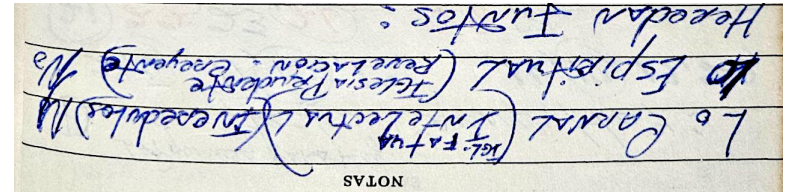 NOTAS
Lo CARNAL (IGL. FATUA INTELECTUAL) (INCREDULOS) N
lo ESPIRITUAL (IGLESIA PRUDENTE REVELACION : CREYENTE) No
HEREDAN JUNTOS :